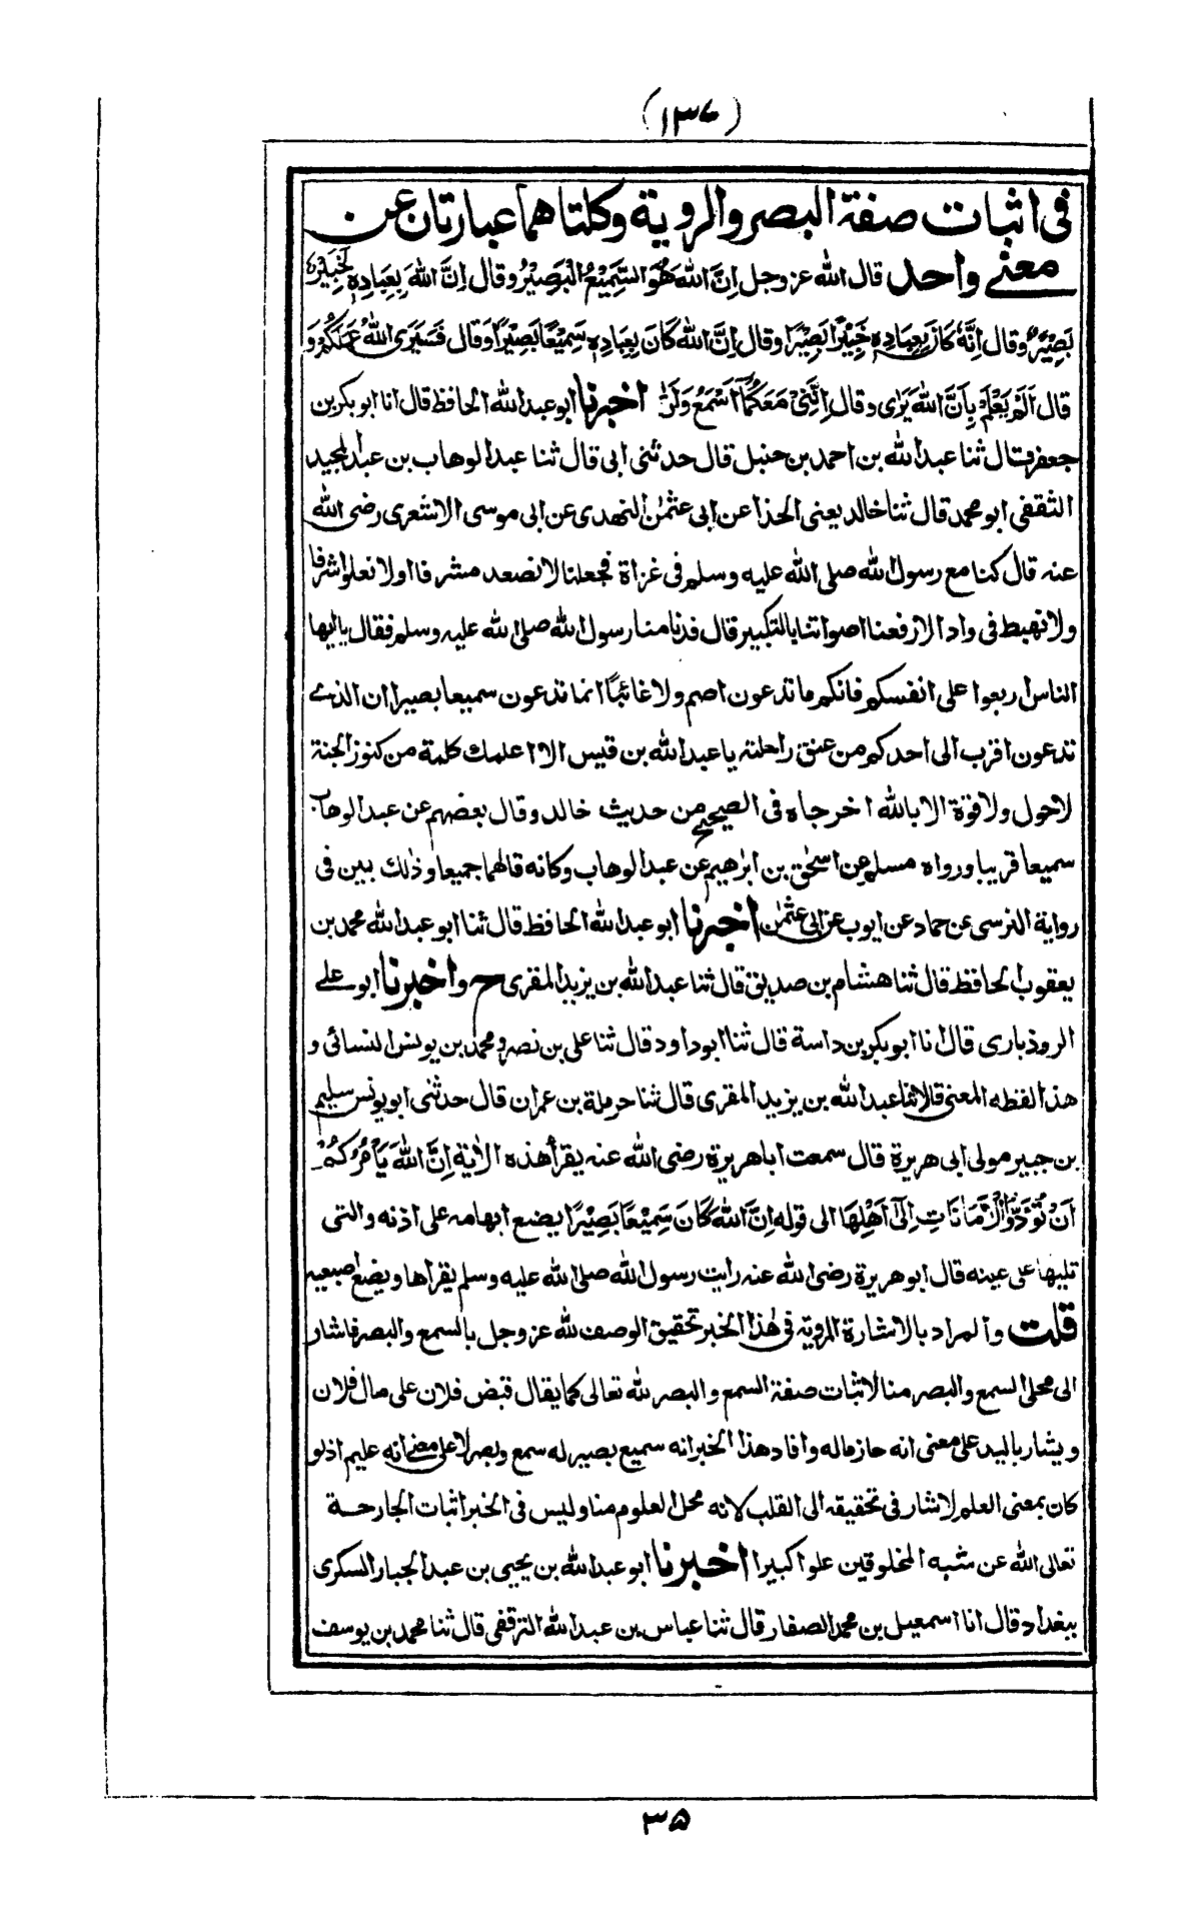 (١٣٧)
فى اثبات صفة البصر والروية وكلتاهما عبارتان عن
معنے واحد قال الله عز وجل اِنَّ اللهَ هُوَ السَّمِيْعُ الْبَصِيْرُ وقال اِنَّ اللهَ بِعِبَادِهٖ لَخَبِيْرٌۢ
بَصِيْرٌ وقال اِنَّهٗ كَانَ بِعِبَادِهٖ خَبِيْرًۢا بَصِيْرًا وقال اِنَّ اللهَ كَانَ بِعِبَادِهٖ سَمِيْعًا بَصِيْرًا وَقال فَسَيَرَى اللهُ عَمَلَكُمْ وَ
قال اَلَمْ يَعْلَمْ بِاَنَّ اللهَ يَرٰى وقال اِنَّنِىْ مَعَكُمَاۤ اَسْمَعُ وَاَرٰى اخبرنا ابو عبد الله الحافظ قال انا ابو بكر بن
جعفر قال ثنا عبد الله بن احمد بن حنبل قال حدثنى ابى قال ثنا عبد الوهاب بن عبد المجيد
الثقفى ابو محمد قال ثنا خالد يعنى الحذا عن ابى عثمٰن النهدى عن ابى موسى الاشعرى رضى الله
عنه قال كنا مع رسول الله صلى الله عليه وسلم فى غزاة فجعلنا لا نصعد مشرفا اولا نعلو اشرفا
ولا نهبط فى واد الا رفعنا اصواتنا بالتكبير قال فدنا منا رسول الله صلى الله عليه وسلم فقال يا ايها
الناس اربعوا على انفسكم فانكم ما تدعون اصم ولا غائبًا انما تدعون سميعا بصيرا ان الذے
تدعون اقرب الى احدكم من عنق راحلته يا عبد الله بن قيس الا اعلمك كلمة من كنوز الجنة
لا حول ولا قوة الا بالله اخرجاه فى الصحيح من حديث خالد وقال بعضهم عن عبد الوهاب
سميعا قريبا ورواه مسلم عن اسحٰق بن ابرٰهيم عن عبد الوهاب وكانه قالهما جميعا وذٰلك بين فى
رواية النرسى عن حماد عن ايوب عن ابى عثمٰن اخبرنا ابو عبد الله الحافظ قال ثنا ابو عبد الله محمد بن
يعقوب الحافظ قال ثنا هشام بن صديق قال ثنا عبد الله بن يزيد المقرى ح واخبرنا ابو علے
الروذبارى قال انا ابو بكر بن داسة قال ثنا ابو داود قال ثنا على بن نصر ومحمد بن يونس النسائى و
هذا لفظه المعنى قالا ثنا عبد الله بن يزيد المقرى قال ثنا حرملة بن عمران قال حدثنى ابو يونس سليم
بن جبير مولى ابى هريرة قال سمعت ابا هريرة رضى الله عنه يقرأ هذه الاٰية اِنَّ اللهَ يَاْمُرُكُمْ
اَنْ تُؤَدُّوا الْاَمَانَاتِ اِلٰىٓ اَهْلِهَا الى قوله اِنَّ اللهَ كَانَ سَمِيْعًا بَصِيْرًا يضع ابهامه على اذنه والتى
تليها على عينه قال ابو هريرة رضى الله عنه رايت رسول الله صلى الله عليه وسلم يقراها ويضع اصبعيه
قلت والمراد بالاشارة المروية فى هٰذا الخبر تحقيق الوصف لله عز وجل بالسمع والبصر فاشار
الى محلى السمع والبصر منا لاثبات صفة السمع والبصر لله تعالى كما يقال قبض فلان على مال فلان
ويشار باليد على معنى انه حاز ماله وافاد هذا الخبر انه سميع بصير له سمع وبصر لا على معنے انه عليم اذ لو
كان بمعنى العلم لاشار فى تحقيقه الى القلب لانه محل العلوم منا وليس فى الخبر اثبات الجارحة
تعالى الله عن شبه المخلوقين علوا كبيرا اخبرنا ابو عبد الله بن يحيى بن عبد الجبار السكرى
ببغداد قال انا اسمعيل بن محمد الصفار قال ثنا عباس بن عبد الله الترقفى قال ثنا محمد بن يوسف
٣٥